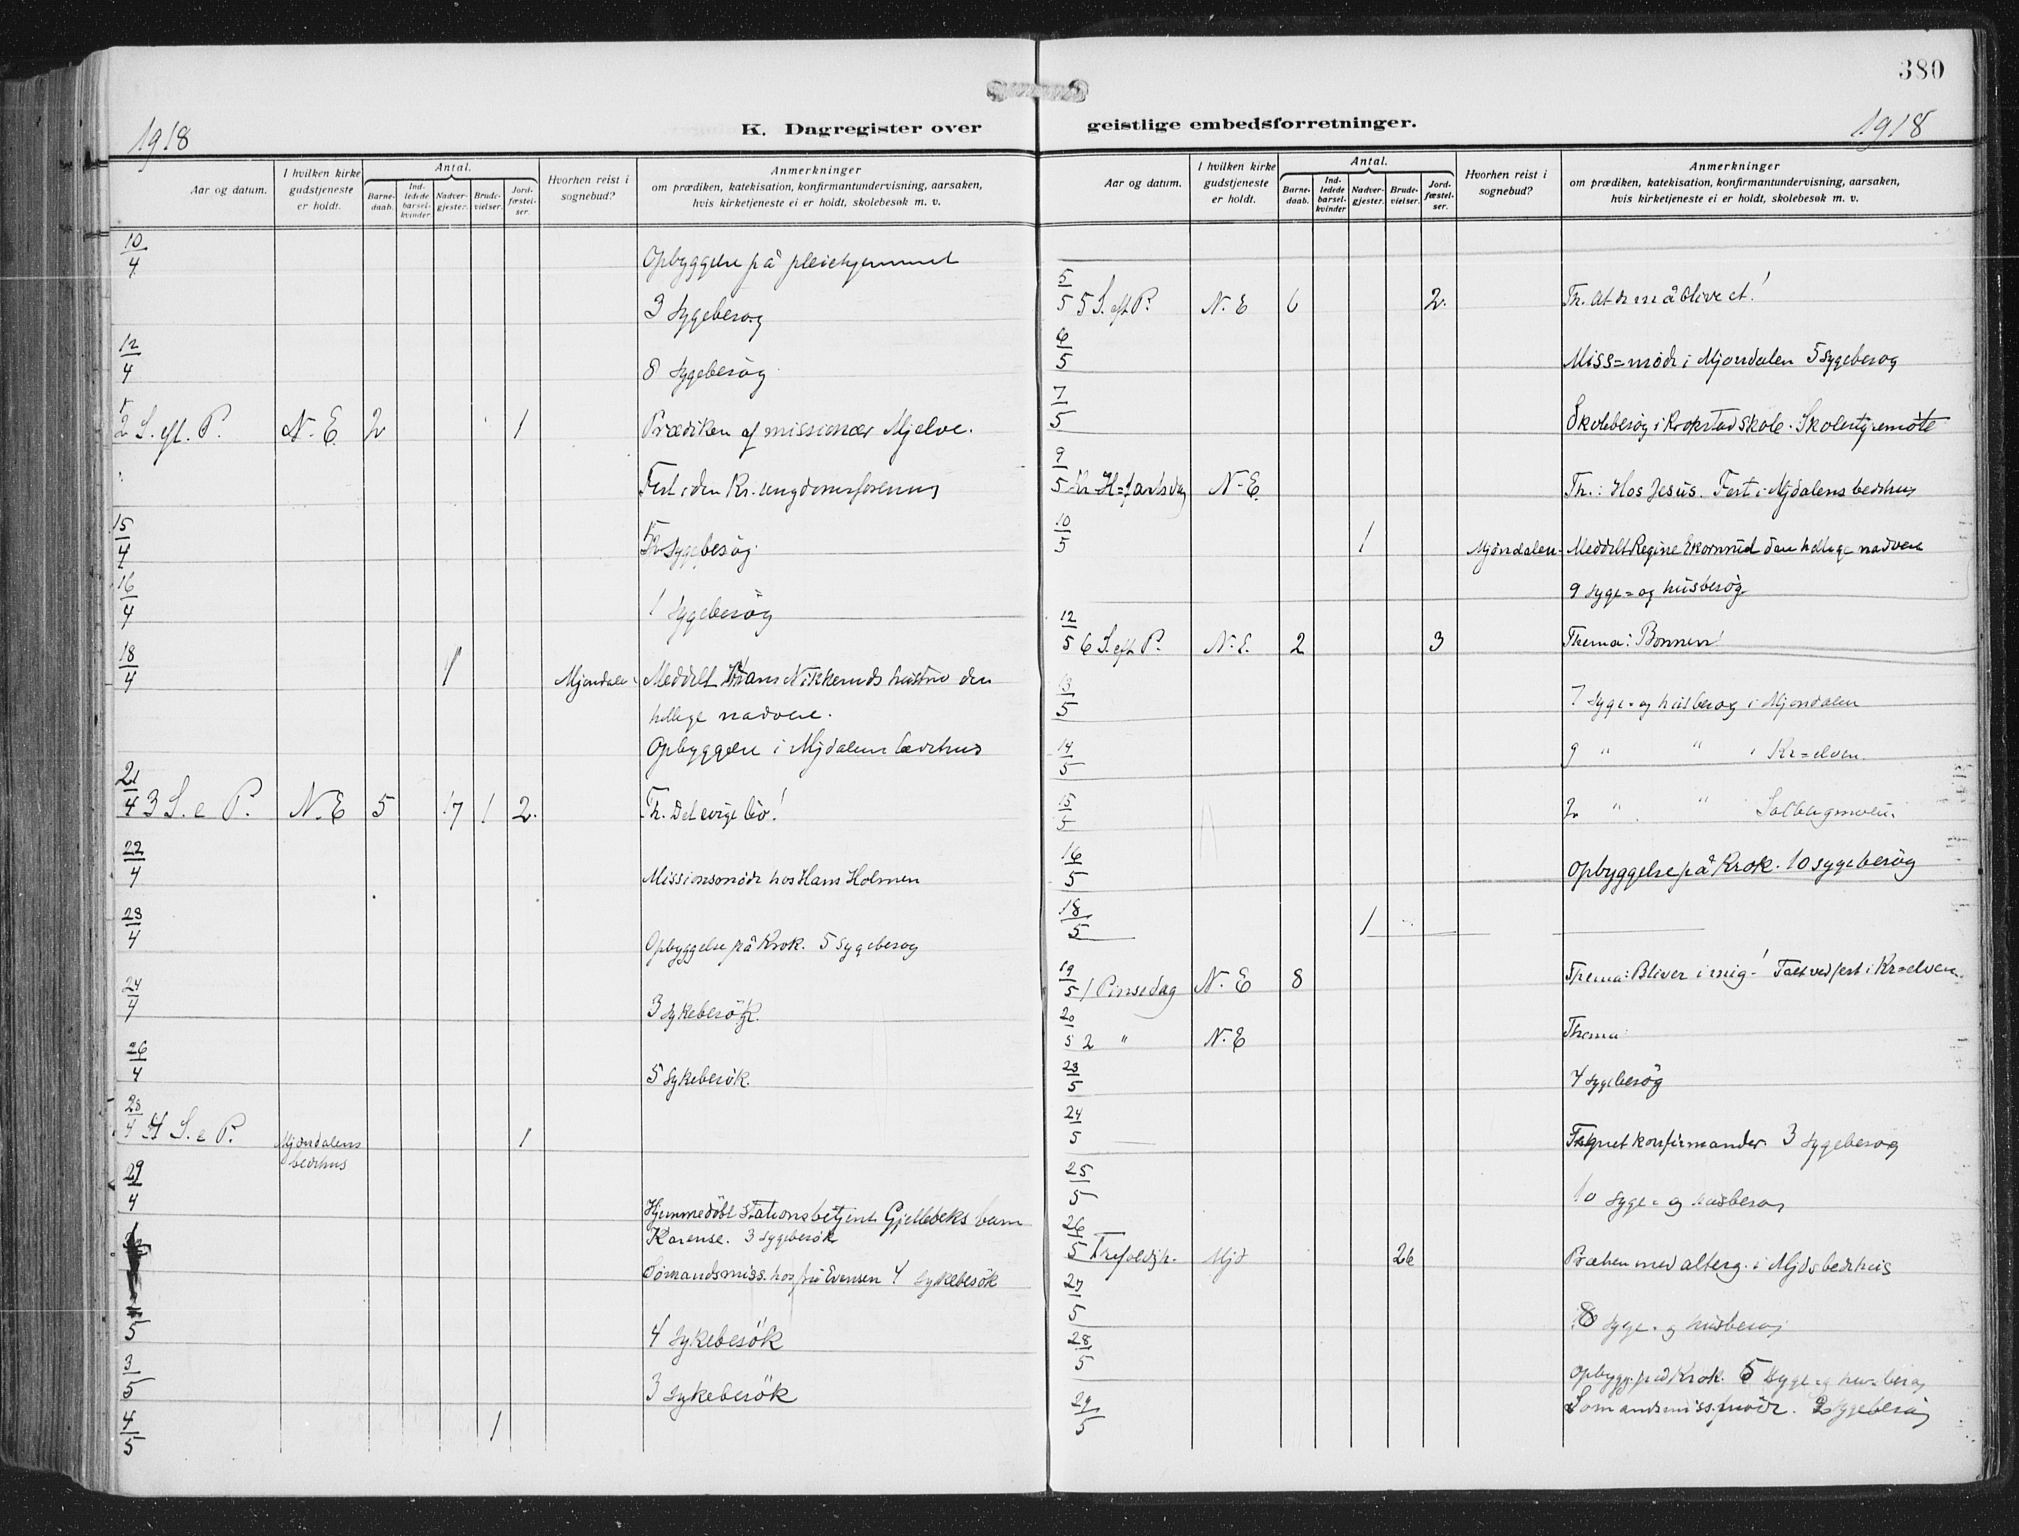 380
1918
K. Dagregister over
geistlige embedsforretninger.
1918
Aar og datum.
I hvilken kirke gudstjeneste er holdt.
Antal.
Barne-daab.
Ind-ledede barsel-kvinder
Nadver-gjester.
Brude-vielser.
Jord-fæstel-ser.
Hvorhen reist i sognebud?
Anmerkninger
om prædiken, katekisation, konfirmantundervisning, aarsaken,
hvis kirketjeneste ei er holdt, skolebesøk m. v.
10/4 Opbyggelse på pleiehjemmet
3 Sygebesøg
12/4 8 Sygebesøg
2 S. eft. P. N. E 2 1 Prædiken af missionær Mjelve.
Fest i den Kr. ungdomsforening
15/4 Sygebesøg
16/4 1 Sygebesøg
18/4 1 Mjøndalen Meddelt Hans Nikkeruds hustru den
hellige nadvere.
Opbyggelse i Mjdalens bedehus
21/4 3 S. e P. N. E 5 17 1 2. Th. Det evige liv!
22/4 Missionsmöde hos Hans Holmen
23/4 Opbyggelse på Krok. 5 Sygebesøg
24/4 3 Sykebesök.
26/4 5 Sykebesök.
28/4 4 S. e P. Mjøndalens 1
bedehus
29/4
Hjemmedöbt stationsbetjent Gjellebeks barn
Karense. 3 Sygebesøk
Sømandsmiss. hos fru Evensen 4 Sykebesök
/5 4 Sykebesök
3/5 3 Sykebesök
4/5 1
Aar og datum.
I hvilken kirke gudstjeneste er holdt.
Antal.
Barne-daab.
Ind-ledede barsel-kvinder
Nadver-gjester.
Brude-vielser.
Jord-fæstel-ser.
Hvorhen reist i sognebud?
Anmerkninger
om prædiken, katekisation, konfirmantundervisning, aarsaken,
hvis kirketjeneste ei er holdt, skolebesøk m. v.
5/5 5 S. eft P. N. E 6 2. Th. At de må blive et!
6/5 Miss=möde i Mjøndalen 5 Sygebesøg
7/5 Skolebesøg i Krokstad skole. Skolestyremöte
9/5 Kr. H=fartsdag N. E. Th.: Hos Jesus. Fest i Mjdalens bedehus
10/5 1 Mjöndalen. Meddelt Regine Ekornrud den hellige nadvere
9 syge= og husbesøg
12/5 6 S. eft P. N. E. 2 3 Thema: Bønnen!
13/5 7 Syge= og husbesøg i Mjøndalen
14/5 9 " " i Kr=elven.
15/5 2 " " Solbergmoen.
16/5 Opbyggelse på Krok. 10 sygebesøg
18/5 1
19/5 1 Pinsedag N. E 8 Thema: Bliver i mig! Talt ved fest i Kr=elven.
20/5 2 " N. E Thema:
23/5 4 sygebesøg
24/5 Tegnet konfirmander. 3 Sygebesøg
25/5 10 Syge= og husbesøg
26/5 Trefoldigh. Mjd 26 Præken med alterg. i Mjds bedehus
27/5 8 syge= og husbesøg
28/5 Opbygg. på Krok. 5 Syge= og husbesøg
29/5 Sømandsmiss.möde. 2 Sygebesøg